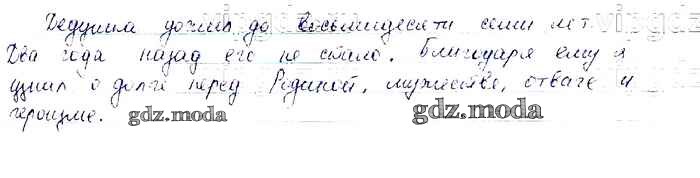 Дедушка дожил до восьмидесяти семи лет.
Два года назад его не стало. Благодаря ему я
узнал о долге перед Родиной, мужестве, отваге и
героизме.
gdz.moda
gdz.moda